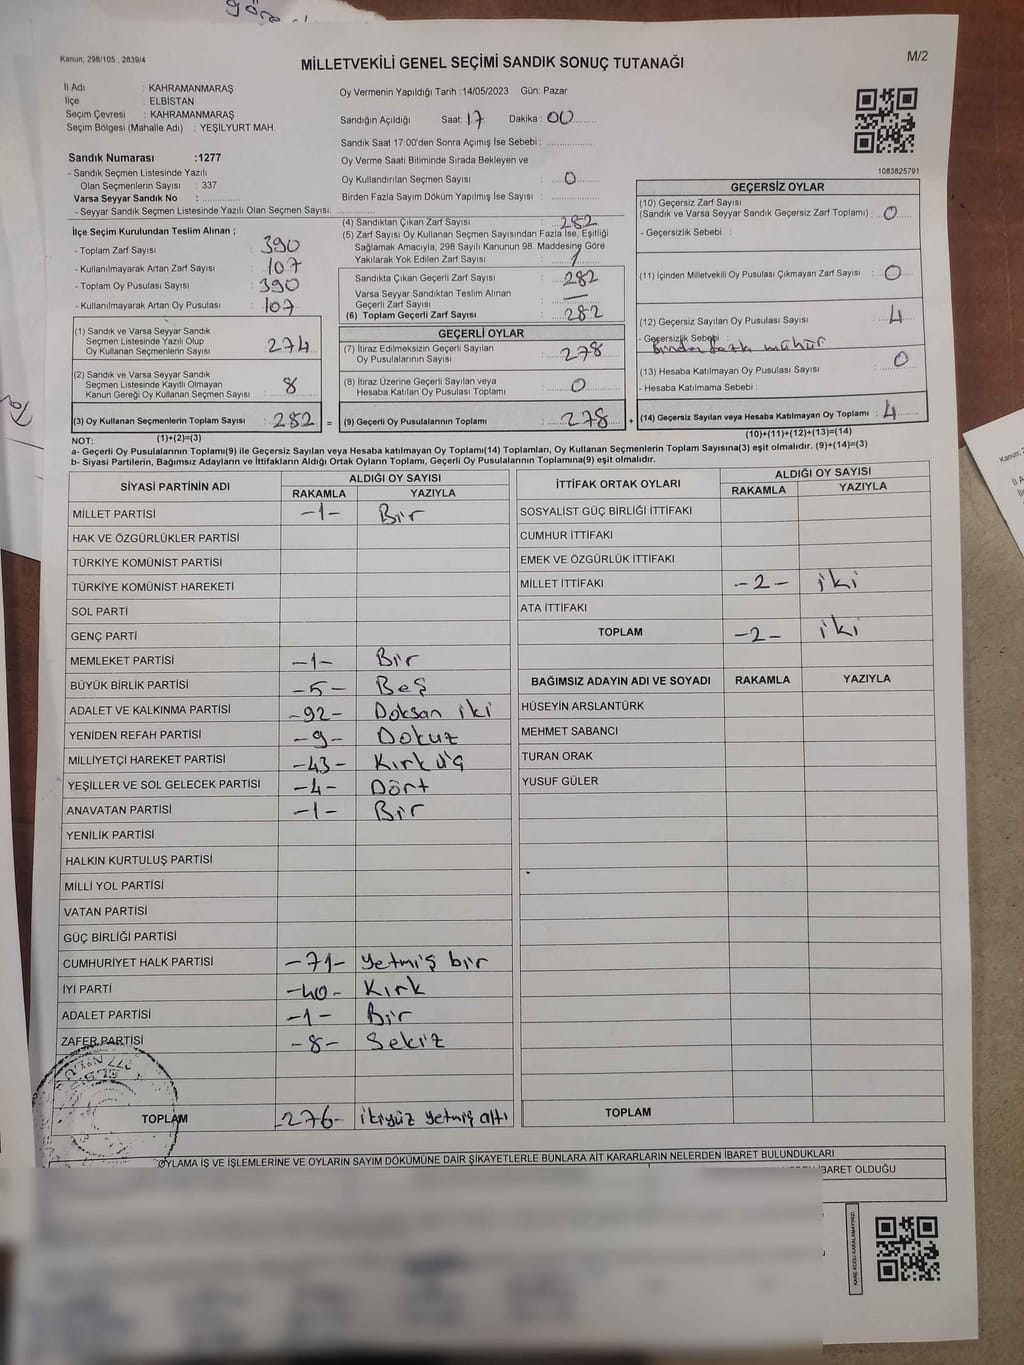 Kanun; 298/105 , 2839/4
MİLLETVEKİLİ GENEL SEÇİMİ SANDIK SONUÇ TUTANAĞI
M/2
İl Adı : KAHRAMANMARAŞ
İlçe : ELBİSTAN
Seçim Çevresi : KAHRAMANMARAŞ
Seçim Bölgesi (Mahalle Adı) : YEŞİLYURT MAH.
Sandık Numarası :1277
- Sandık Seçmen Listesinde Yazılı
Olan Seçmenlerin Sayısı : 337
Varsa Seyyar Sandık No :
- Seyyar Sandık Seçmen Listesinde Yazılı Olan Seçmen Sayısı:
Oy Vermenin Yapıldığı Tarih :14/05/2023 Gün: Pazar
Sandığın Açıldığı Saat: 17 Dakika : 00
Sandık Saat 17:00'den Sonra Açımış İse Sebebi :
Oy Verme Saati Bitiminde Sırada Bekleyen ve
Oy Kullandırılan Seçmen Sayısı : 0
Birden Fazla Sayım Döküm Yapılmış İse Sayısı :
1083825791
İlçe Seçim Kurulundan Teslim Alınan ;
- Toplam Zarf Sayısı : 390
- Kullanılmayarak Artan Zarf Sayısı : 107
- Toplam Oy Pusulası Sayısı : 390
- Kullanılmayarak Artan Oy Pusulası : 107
(1) Sandık ve Varsa Seyyar Sandık
Seçmen Listesinde Yazılı Olup
Oy Kullanan Seçmenlerin Sayısı : 274
(2) Sandık ve Varsa Seyyar Sandık
Seçmen Listesinde Kayıtlı Olmayan
Kanun Gereği Oy Kullanan Seçmen Sayısı : 8
(3) Oy Kullanan Seçmenlerin Toplam Sayısı : 282 =
(1)+(2)=(3)
(4) Sandıktan Çıkan Zarf Sayısı : 282
(5) Zarf Sayısı Oy Kullanan Seçmen Sayısından Fazla İse, Eşitliği
Sağlamak Amacıyla, 298 Sayılı Kanunun 98. Maddesine Göre
Yakılarak Yok Edilen Zarf Sayısı :
Sandıkta Çıkan Geçerli Zarf Sayısı : 282
Varsa Seyyar Sandıktan Teslim Alınan
Geçerli Zarf Sayısı : —
(6) Toplam Geçerli Zarf Sayısı : 282
GEÇERLİ OYLAR
(7) İtiraz Edilmeksizin Geçerli Sayılan
Oy Pusulalarının Sayısı : 278
(8) İtiraz Üzerine Geçerli Sayılan veya
Hesaba Katılan Oy Pusulası Toplamı : 0
(9) Geçerli Oy Pusulalarının Toplamı : 278 +
GEÇERSİZ OYLAR
(10) Geçersiz Zarf Sayısı
(Sandık ve Varsa Seyyar Sandık Geçersiz Zarf Toplamı) : 0
- Geçersizlik Sebebi :
(11) İçinden Milletvekili Oy Pusulası Çıkmayan Zarf Sayısı : 0
(12) Geçersiz Sayılan Oy Pusulası Sayısı : 4
- Geçersizlik Sebebi
birden fazla mühür
(13) Hesaba Katılmayan Oy Pusulası Sayısı : 0
- Hesaba Katılmama Sebebi :
(14) Geçersiz Sayılan veya Hesaba Katılmayan Oy Toplamı : 4
(10)+(11)+(12)+(13)=(14)
NOT:
a- Geçerli Oy Pusulalarının Toplamı(9) ile Geçersiz Sayılan veya Hesaba katılmayan Oy Toplamı(14) Toplamları, Oy Kullanan Seçmenlerin Toplam Sayısına(3) eşit olmalıdır. (9)+(14)=(3)
b- Siyasi Partilerin, Bağımsız Adayların ve İttifakların Aldığı Ortak Oyların Toplamı, Geçerli Oy Pusulalarının Toplamına(9) eşit olmalıdır.
SİYASİ PARTİNİN ADI ALDIĞI OY SAYISI
RAKAMLA YAZIYLA
MİLLET PARTİSİ -1- Bir
HAK VE ÖZGÜRLÜKLER PARTİSİ
TÜRKİYE KOMÜNİST PARTİSİ
TÜRKİYE KOMÜNİST HAREKETİ
SOL PARTİ
GENÇ PARTİ
MEMLEKET PARTİSİ -1- Bir
BÜYÜK BİRLİK PARTİSİ -5- Beş
ADALET VE KALKINMA PARTİSİ -92- Doksan iki
YENİDEN REFAH PARTİSİ -9- Dokuz
MİLLİYETÇİ HAREKET PARTİSİ -43- Kırk üç
YEŞİLLER VE SOL GELECEK PARTİSİ -4- Dört
ANAVATAN PARTİSİ -1- Bir
YENİLİK PARTİSİ
HALKIN KURTULUŞ PARTİSİ
MİLLİ YOL PARTİSİ
VATAN PARTİSİ
GÜÇ BİRLİĞİ PARTİSİ
CUMHURİYET HALK PARTİSİ -71- Yetmiş bir
İYİ PARTİ -40- Kırk
ADALET PARTİSİ -1- Bir
ZAFER PARTİSİ -8- Sekiz
TOPLAM -276- ikiyüz yetmiş altı
İTTİFAK ORTAK OYLARI ALDIĞI OY SAYISI
RAKAMLA YAZIYLA
SOSYALİST GÜÇ BİRLİĞİ İTTİFAKI
CUMHUR İTTİFAKI
EMEK VE ÖZGÜRLÜK İTTİFAKI
MİLLET İTTİFAKI -2- iki
ATA İTTİFAKI
TOPLAM -2- iki
BAĞIMSIZ ADAYIN ADI VE SOYADI RAKAMLA YAZIYLA
HÜSEYİN ARSLANTÜRK
MEHMET SABANCI
TURAN ORAK
YUSUF GÜLER
TOPLAM
OYLAMA İŞ VE İŞLEMLERİNE VE OYLARIN SAYIM DÖKÜMÜNE DAİR ŞİKAYETLERLE BUNLARA AİT KARARLARIN NELERDEN İBARET BULUNDUKLARI
İBARET OLDUĞU
KARE KODU KARALAMAYINIZ!